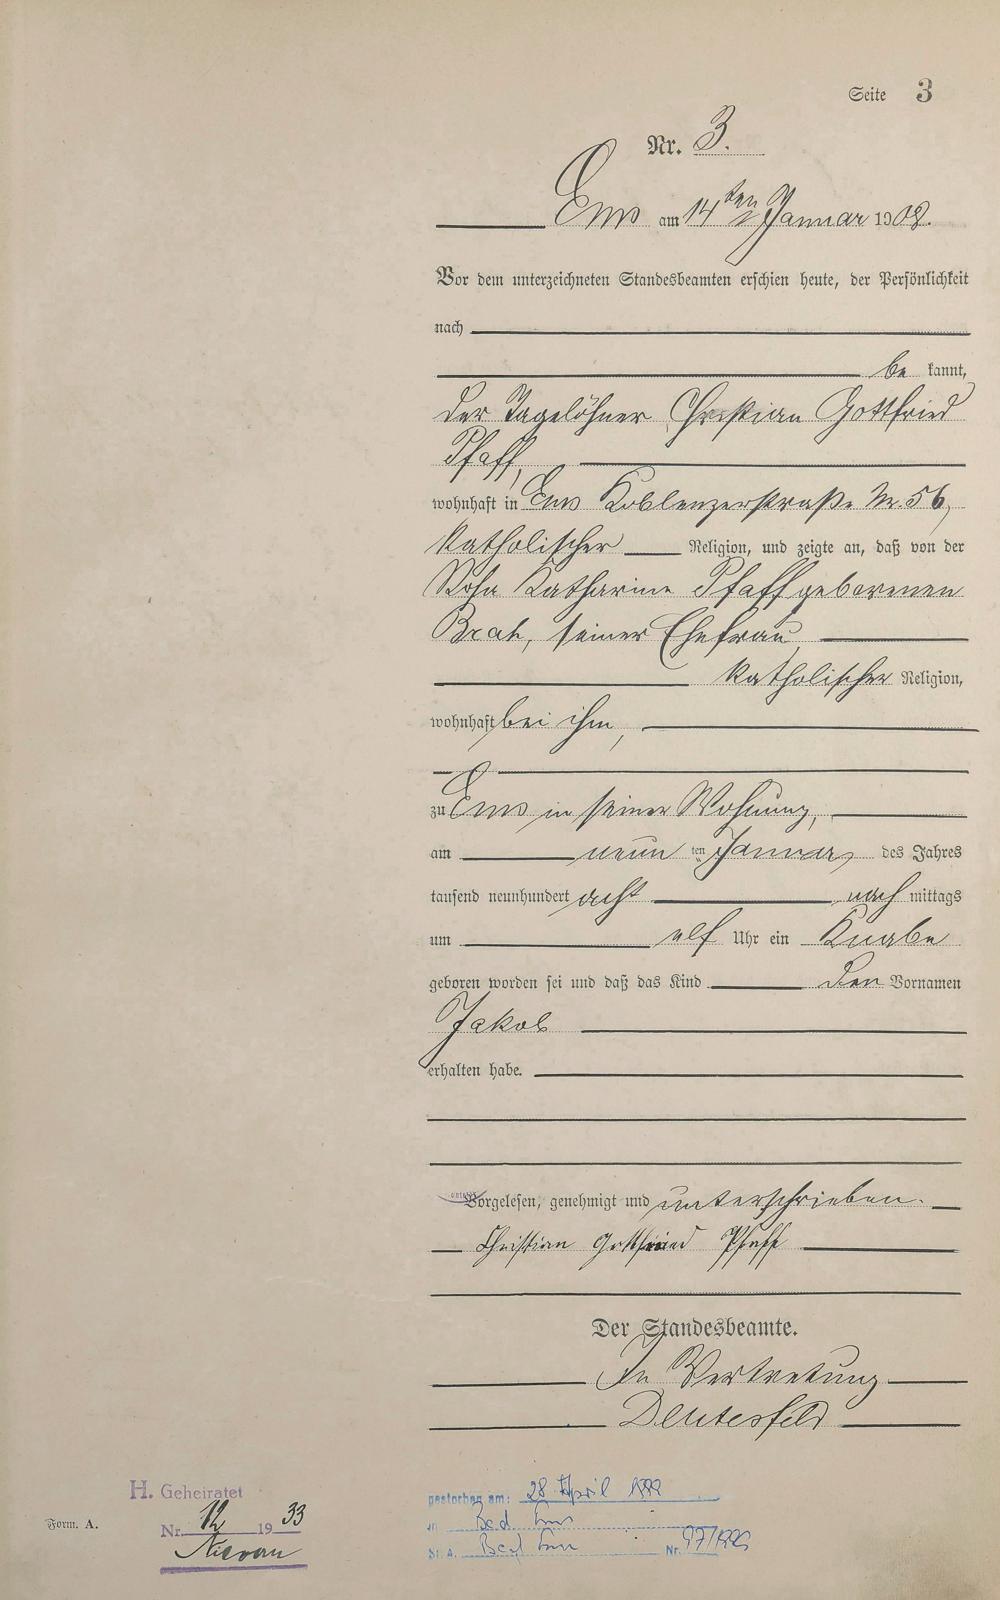 Seite 3
Nr. 3.
Ems am 14ten Januar 1908.
Vor dem unterzeichneten Standesbeamten erschien heute, der Persönlichkeit
nach
be kannt,
der Tagelöhner Christian Gottfried
Pfaff,
wohnhaft in Ems Koblenzerstraße Nr. 56,
katholischer Religion, und zeigte an, daß von der
Rosa Katharine Pfaff geborenen
seiner Ehefrau
katholischer Religion,
wohnhaft bei ihm,
zu Ems in seiner Wohnung,
am neun ten Januar, des Jahres
tausend neunhundert acht nach mittags
um elf Uhr ein Knabe
geboren worden sei und daß das Kind den Vornamen
Jakob
erhalten habe.
Vorgelesen, genehmigt und unterschrieben.
Christian Gottfried Pfaff
Der Standesbeamte.
In Vertretung
H. Geheiratet
Nr. 12 1933
Form. A.
gestorben am: 28 April
in Bad Ems
St. A. Bad Ems Nr.